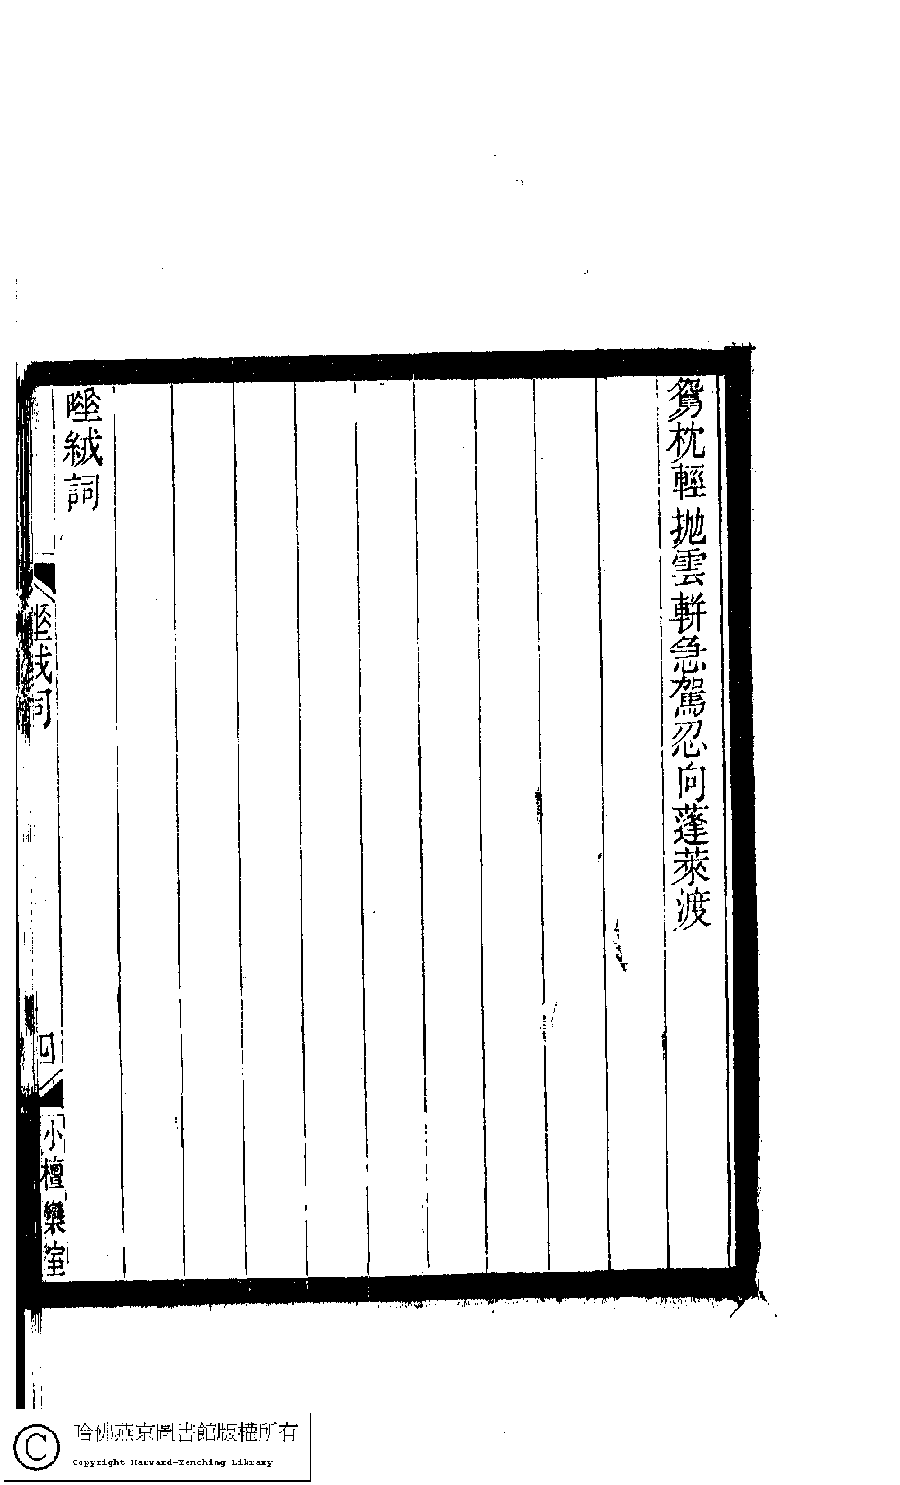 鴛枕輕抛雲軿急駕忍向蓬萊渡
唾絨詞
唾絨詞
四
小檀欒室
哈佛燕京圖書館版權所有
Copyright Harvard-Yenching Library